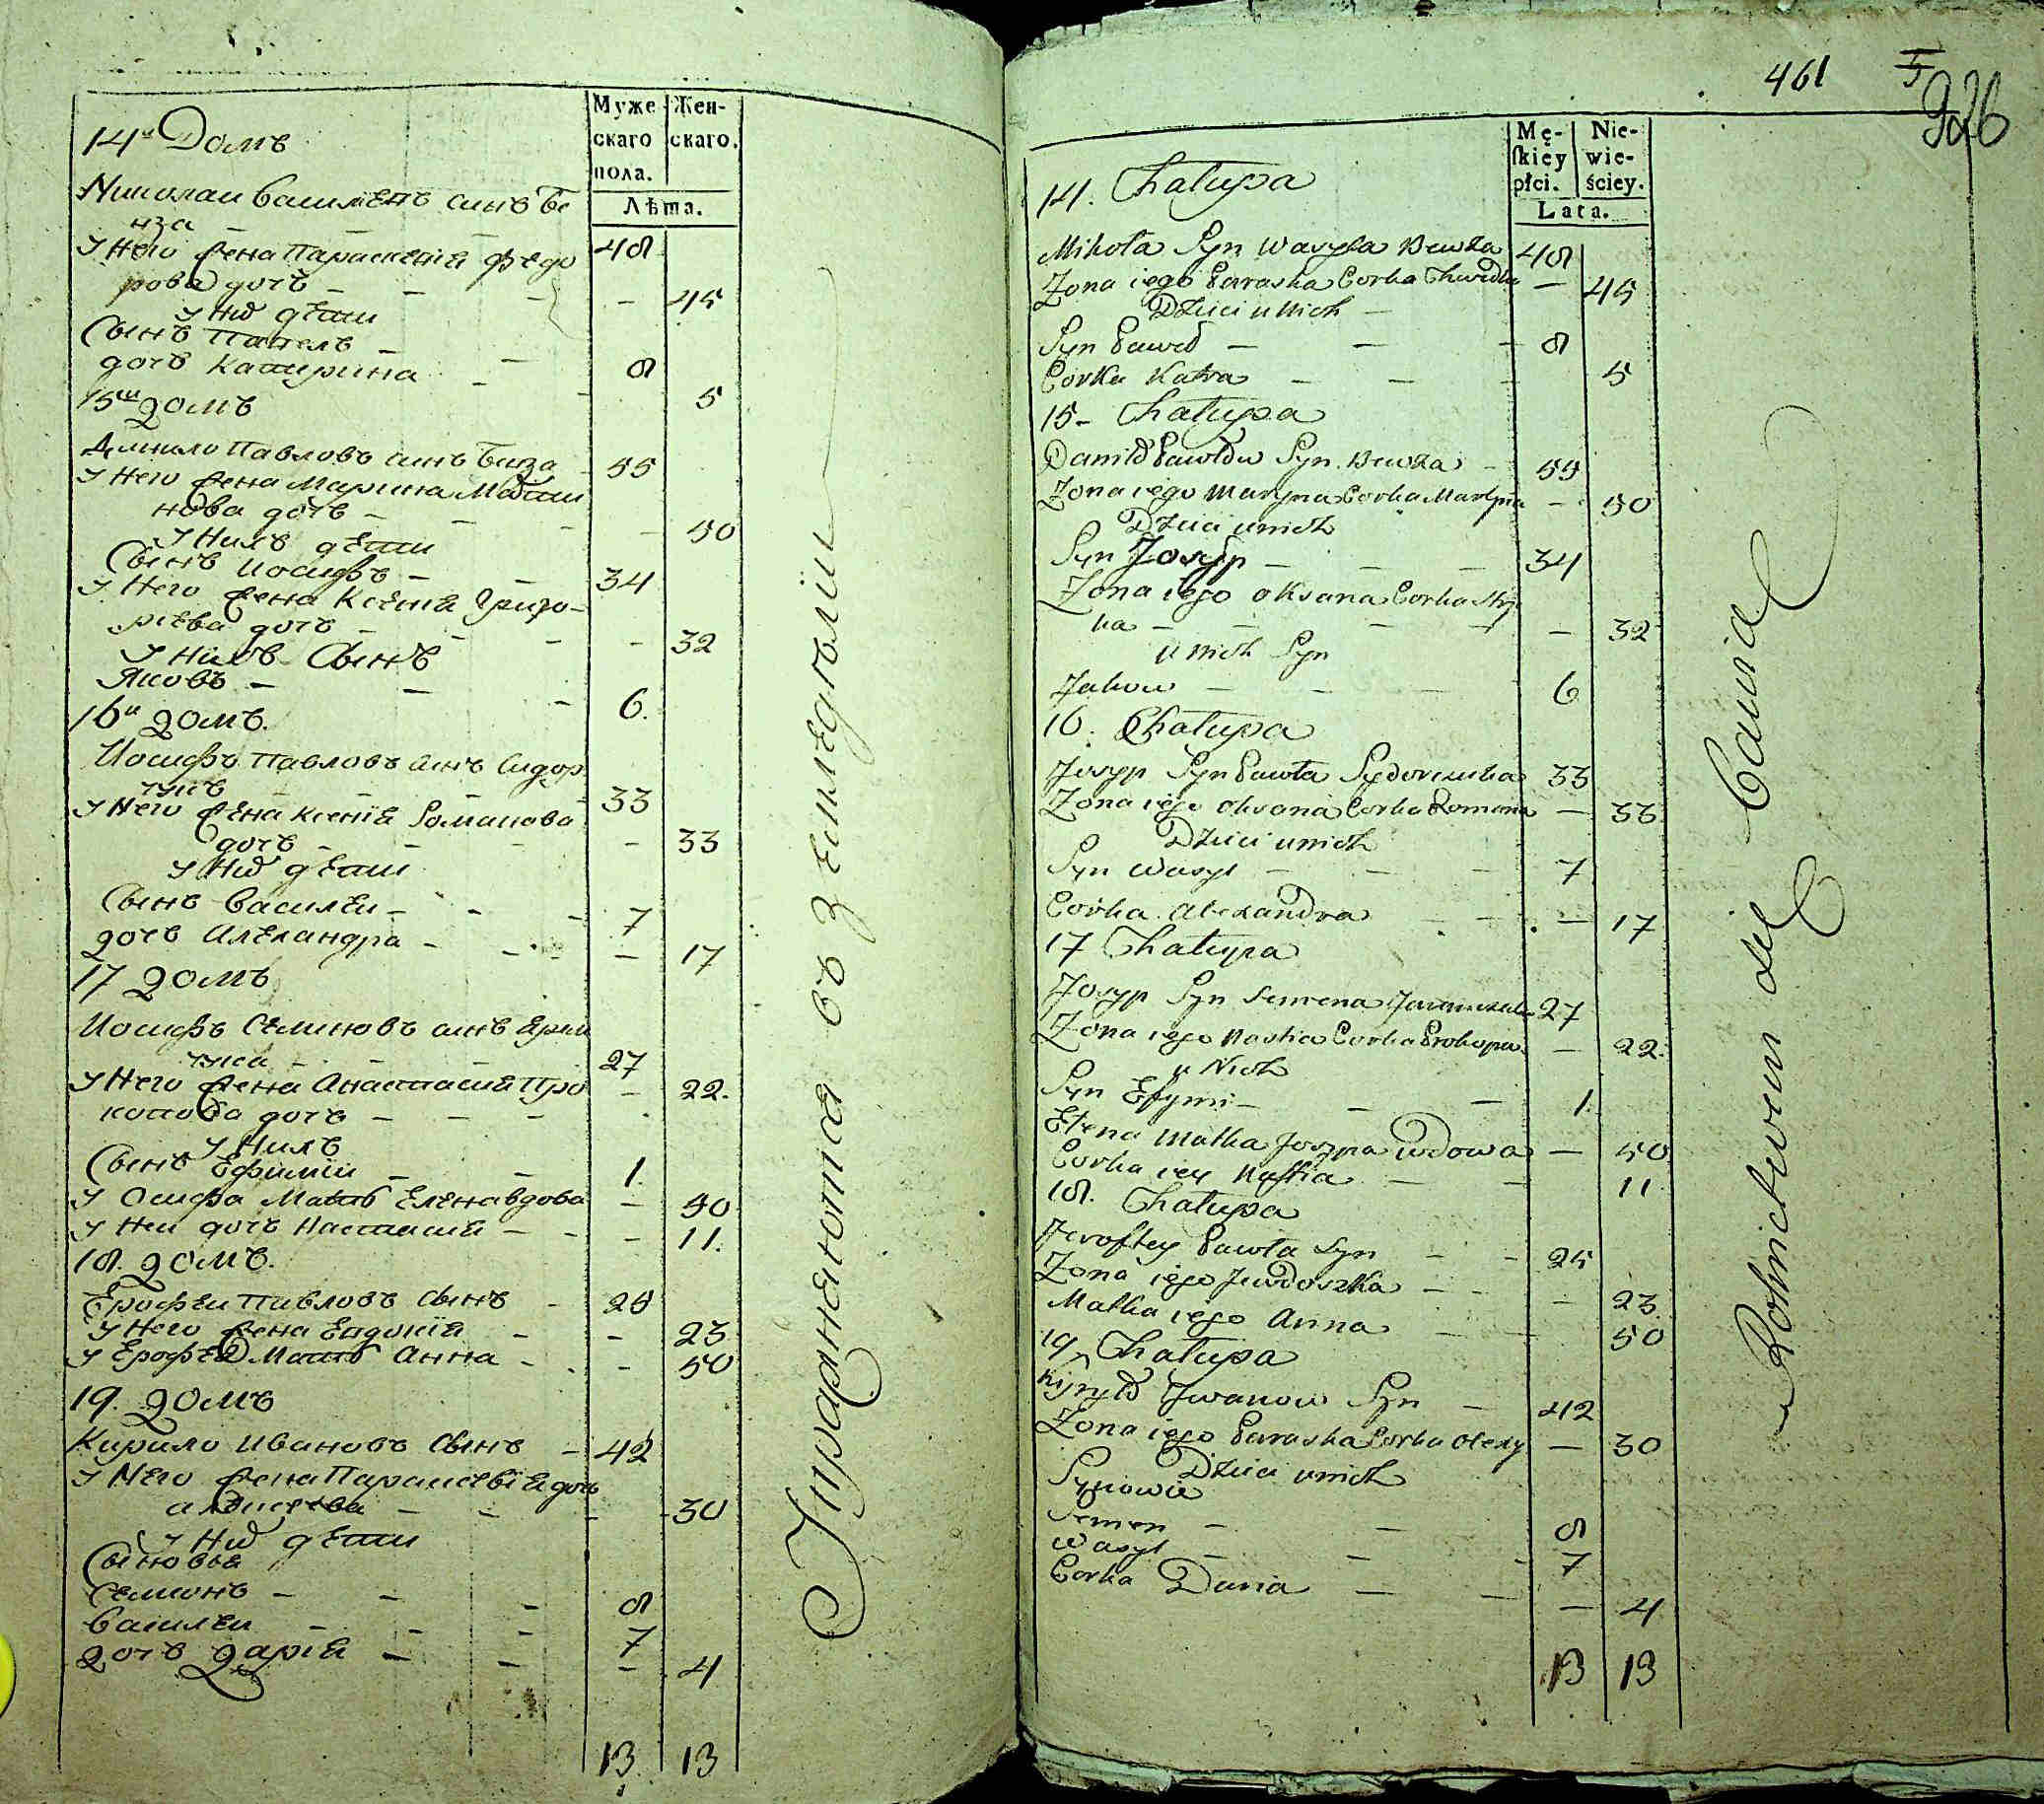 Муже
скаго
пола.
Жен-
скаго.
Лѣта.
14й Домъ
Николаи Василевъ синъ Бе
нза
У Него жена Параскевия Федо 48
рова дочъ - - - 45
У Них дети
Сынъ Павелъ - - 8
дочъ Катирина - - 5
15й домъ
Данило Павловъ синъ Бенза 55
У Него жена Марина Марти
нова дочъ - - - 50
У Нихъ дети
Сынъ Иосифъ - - 34
У Него жена Ксения Григо-
риева дочъ - - - 32
У нихъ Сынъ
Яковъ - - - 6.
16й домъ.
Иосифъ Павловъ синъ Сидор
чукъ 33
У Него жена Ксения Романова
дочъ - - - 33
У Них дети
Сынъ Василеи - - - 7
дочъ Александра - - - 17
17 домъ
Иосифъ Семиновъ синъ Ярем
чука - 27
У Него жена Анастасия Про - 22.
копова дочъ - - -
У Нихъ
Сынъ Ефимии - - 1.
У Осифа Мать Елена вдова - 50
У Неи дочъ Настасия - - - 11.
18. домъ.
Ерофеи Павловъ Сынъ - 25
У Него жена Евдокия - - 23
У Ерофея Мать Анна - - - 50
19. домъ
Кирило Ивановъ Сынъ - 42
У Него жена Параскевия дочъ
- - - 30
У Них дети
Сыновья
Семионъ - - - 8
Василеи - - - 7
дочъ Дария - - - 4
13 13
Упражняются въ земледѣлии
461
926
Mę-
skiey
płci.
Nie-
wie-
ściey.
Lata.
14. Chałupa
Mikoła Syn Wasyla Benza 48
Zona iego Paraska Corka Chwedka — 45
Dzieci u Nich —
Syn Paweł — — - 8
Corka Katra — — - 5
15- Chałupa
Daniło Pawłow Syn Benza - 55
Zona iego Maryna Corka Martyna — 50
Dzieci u nich
Syn Josyp — — — 34
Zona iego Oksana Corka Hry
ka — - - - — 32
u nich Syn
Jakow — - — - 6
16. Chałupa
Josyp Syn Pawła Sydorczuka 33
Zona iego Oksana Corka Romana — 33
Dzieci u nich
Syn Wasyl — — - 7
Corka Alexandra — - — 17
17 Chałupa
Josyp Syn Semena Jaremczuka 27
Zona iego Nastia Corka Prokopa — 22.
u Nich
Syn Efymi — — — 1.
Elena Matka Josypa Wdowa — 50
Corka iey Nastia — — 11
18. Chałupa
Jeroftey Pawła Syn - - 25
Zona iego Jewdoszka - - - 23
Matka iego Anna — - 50
19. Chałupa
Kiryło Jwanow Syn — 42
Zona iego Paraska Corka Olexy — 30
Dzieci u nich
Synowie
Semen — — 8
Wasyl — — - 7
Corka Daria — — — 4
13 13